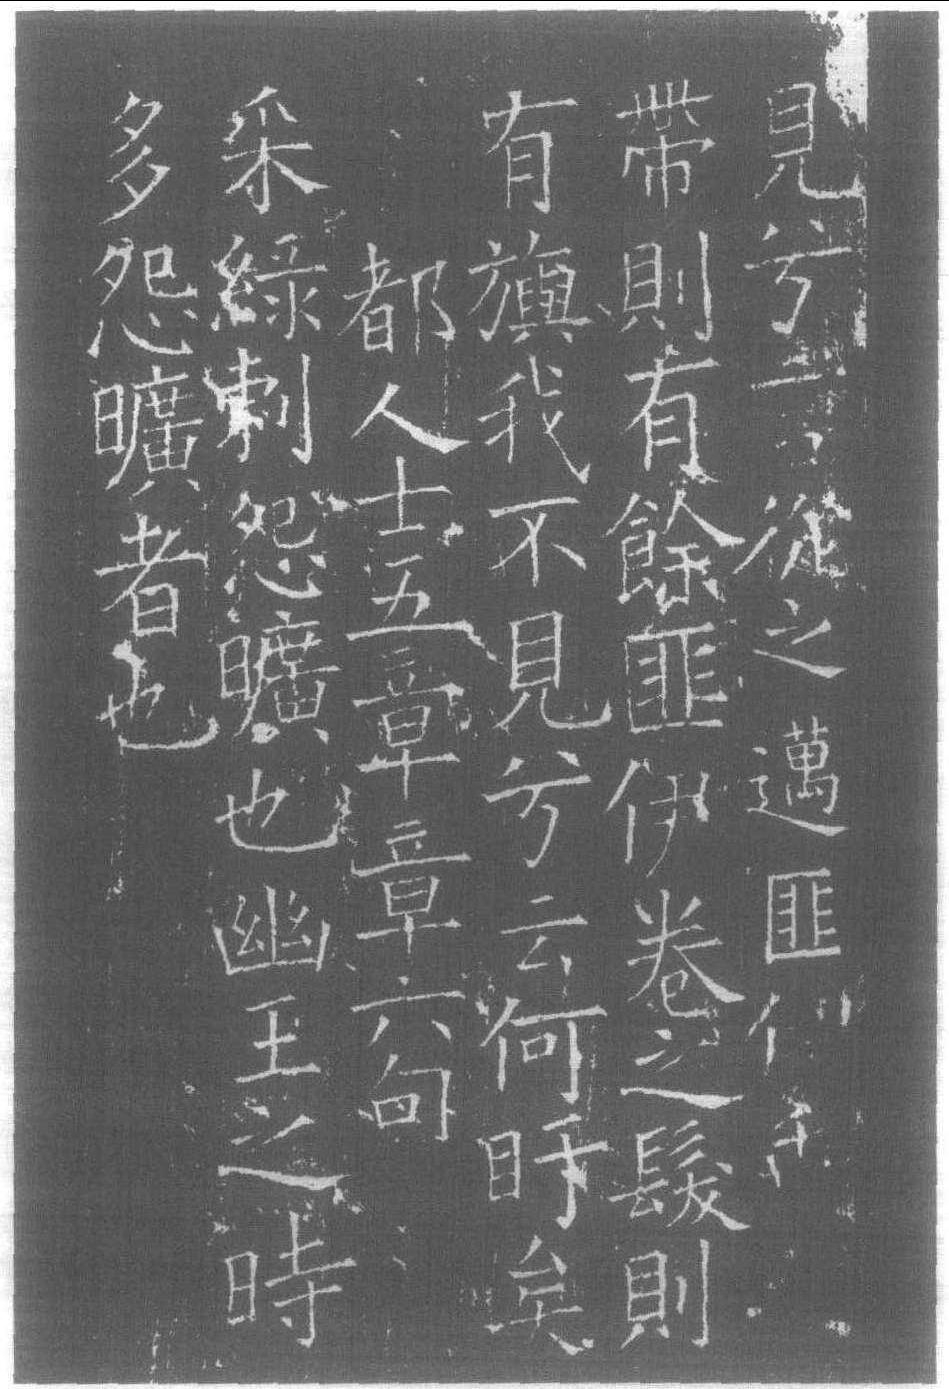 見兮從之邁匪
帶則有餘匪伊卷之髮則
有旟我不見兮云何盱矣
都人士五章章六句
采綠刺怨曠也幽王之時
多怨曠者也